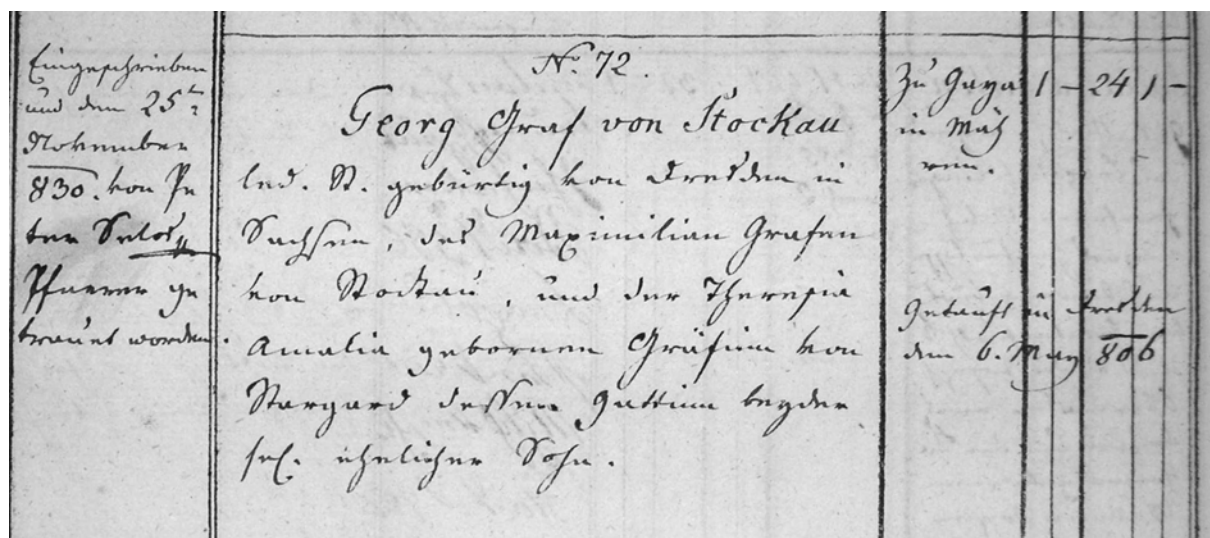 Eingeschrieben
und den 25ten
November
830. von Pe
ter
Pfarrer ge
trauet worden.
No. 72.
Georg Graf von Stockau
led. St. gebürtig von Dresden in
Sachsen, des Maximilian Grafen
von Stockau, und der Theresia
Amalia gebornen Gräfinn von
Stargard dessen Gattinn beyder
sel. ehelicher Sohn.
Zu Gaya
in Mäh
ren.
1 – 24 1 –
Getauft in Dresden
den 6. May 806